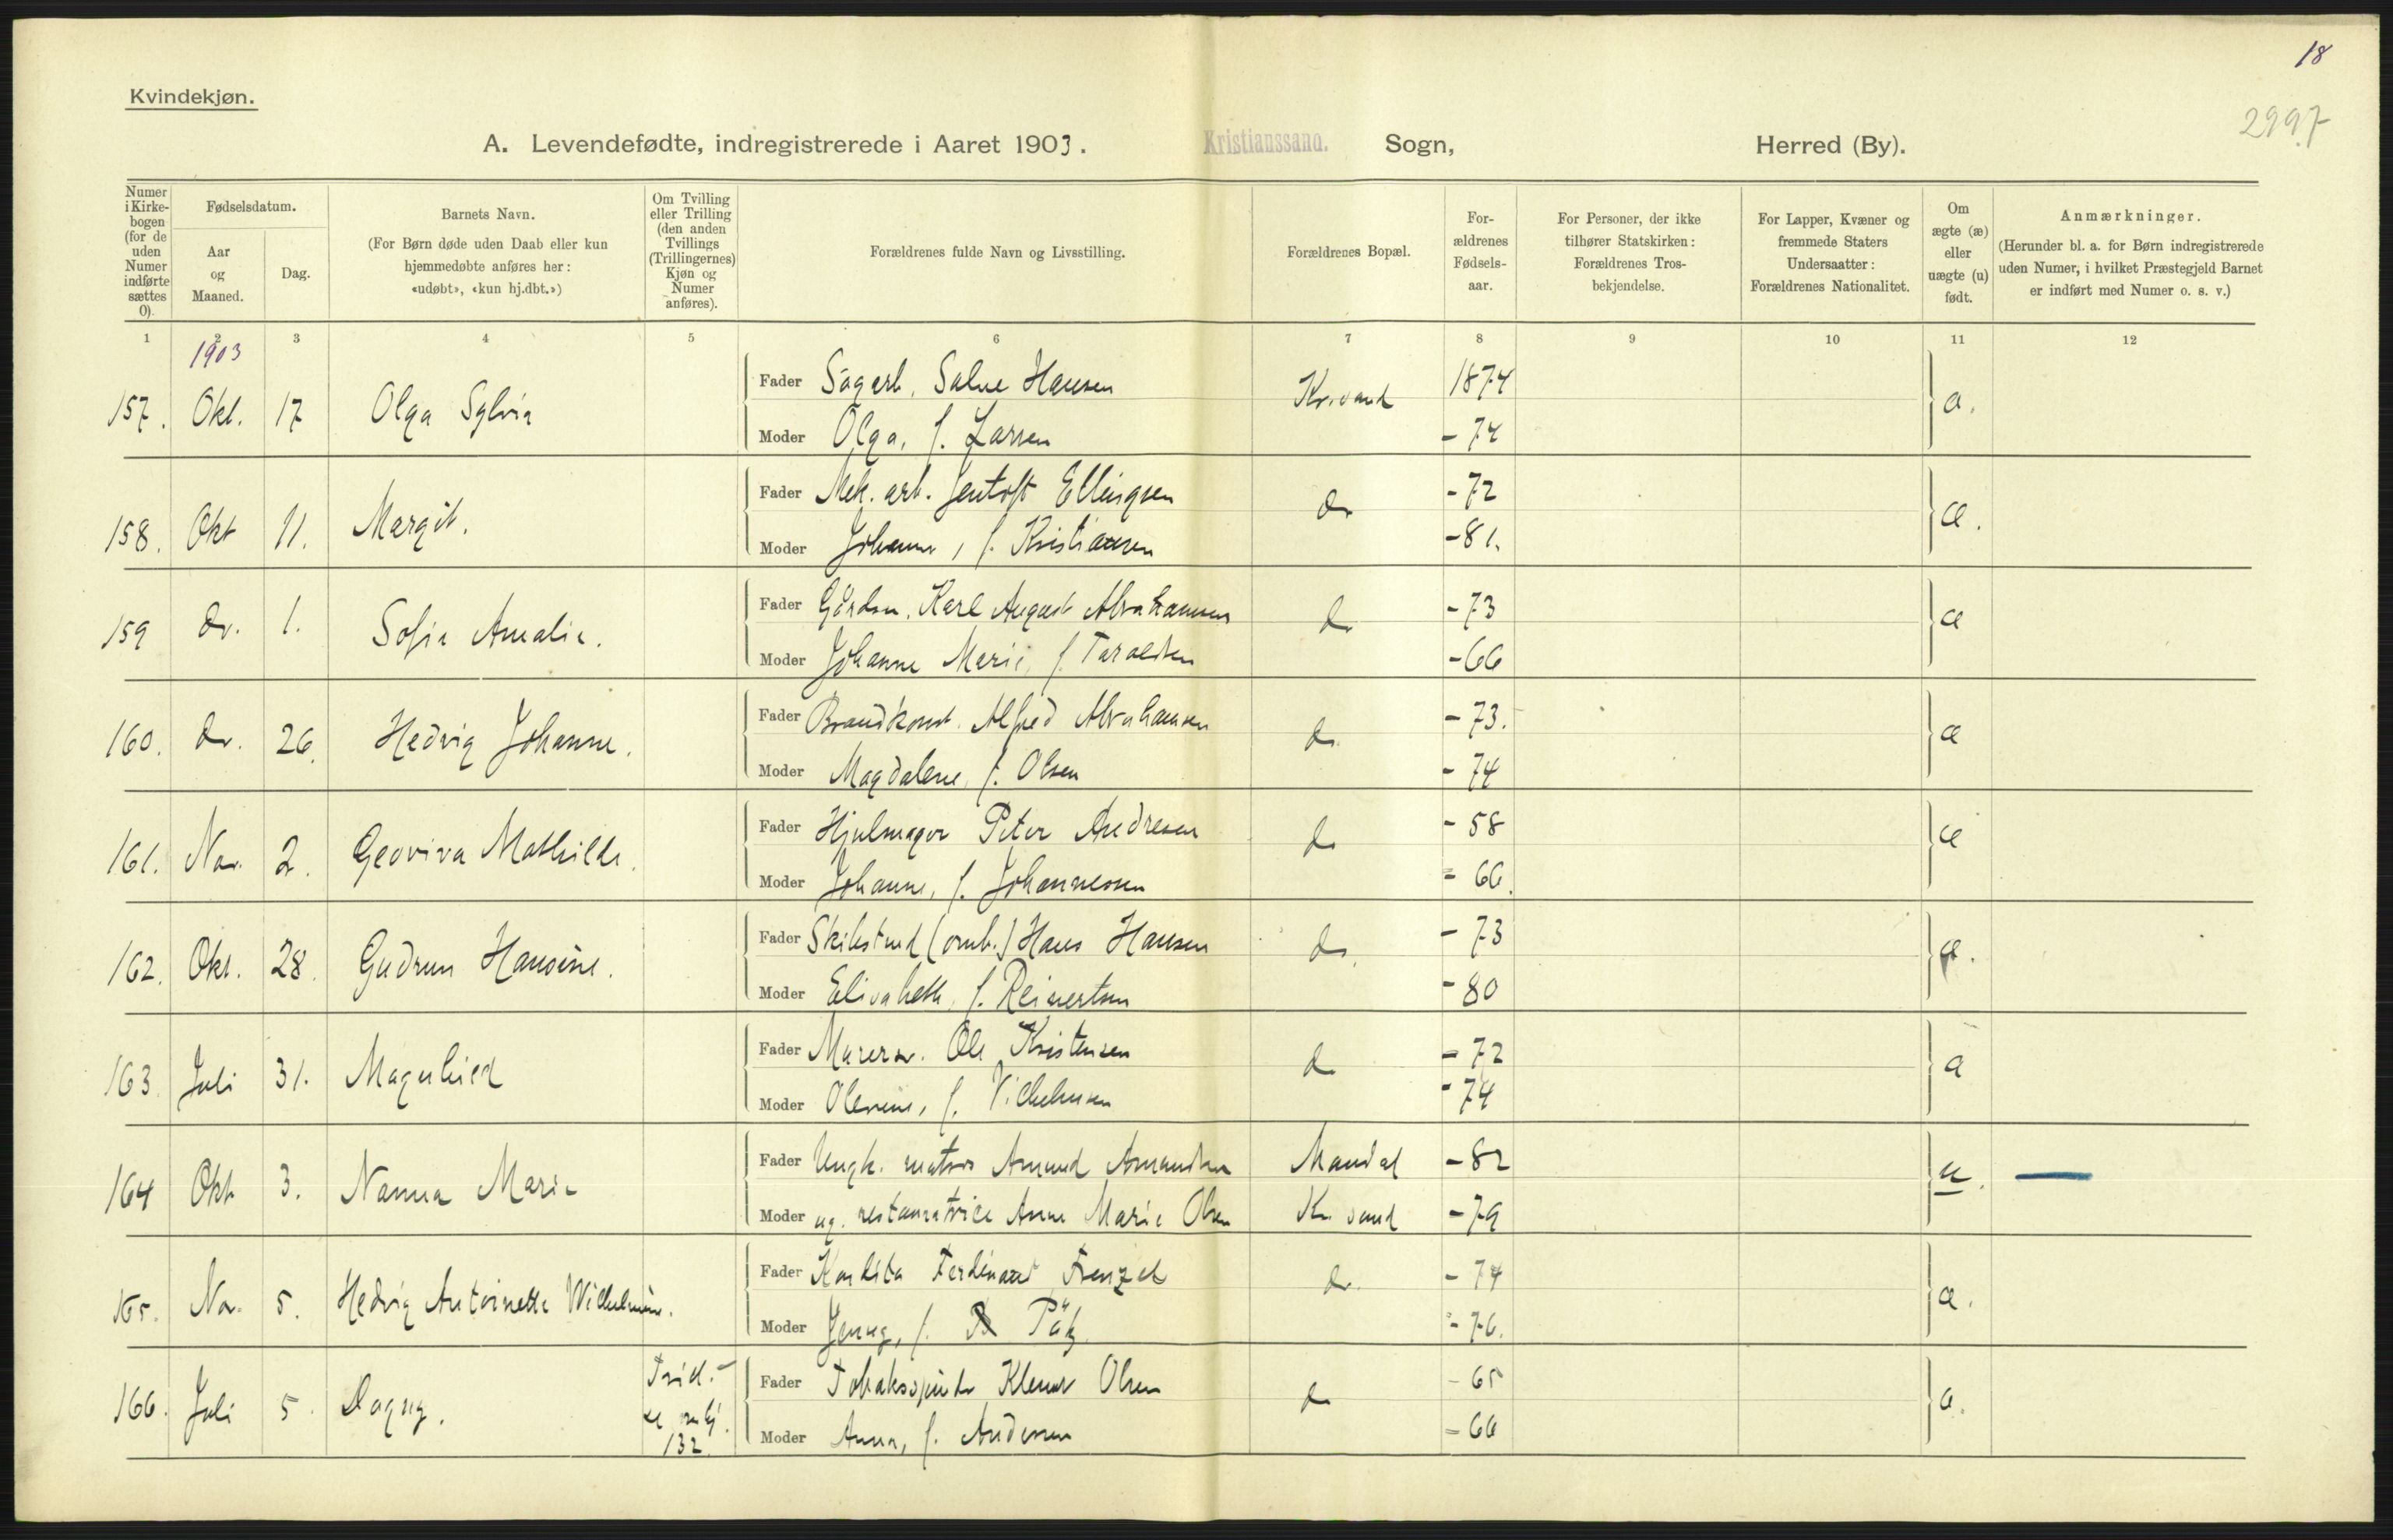 18
2997
Kvindekjøn.
A. Levendefødte, indregistrerede i Aaret 1903. Kristianssand. Sogn, Herred (By).
Numer i Kirke-bogen (for de uden Numer indførte sættes 0).
Fødselsdatum.
Aar og Maaned.
Dag.
Barnets Navn.
(For Børn døde uden Daab eller kun hjemmedøbte anføres her: «udøbt», «kun hj.dbt.»)
Om Tvilling eller Trilling (den anden Tvillings (Trillingernes) Kjøn og Numer anføres).
Forældrenes fulde Navn og Livsstilling.
Forældrenes Bopæl.
For-ældrenes Fødsels-aar.
For Personer, der ikke tilhører Statskirken: Forældrenes Tros-bekjendelse.
For Lapper, Kvæner og fremmede Staters Undersaatter: Forældrenes Nationalitet.
Om ægte (æ) eller uægte (u) født.
Anmærkninger.
(Herunder bl. a. for Børn indregistrerede uden Numer, i hvilket Præstegjeld Barnet er indført med Numer o. s. v.)
1 2 3 4 5 6 7 8 9 10 11 12
1903
157. Okt. 17 Olga Sylvia Fader Sagarb. Salve Hansen Kr.sand 1874 æ.
Moder Olga, f. Larsen - 74
158. Okt 11. Margit. Fader Mek. arb. Jentoft Ellingsen do - 72 æ.
Moder Johanne, f. Kristiansen - 81.
159 do. 1. Sofie Amalie. Fader Karl August Abrahamsen do - 73 æ
Moder Johanne Marie, f. Taraldsen - 66
160. do. 26. Hedvig Johanne. Fader Brandkonst. Alfred Abrahamsen do - 73. æ
Moder Magdalene, f. Olsen - 74
161. Nov. 2. Geoviva Mathilde. Fader Hjulmager Peter Andresen do - 58 æ
Moder Johanne, f. Johannessen - 66.
162. Okt. 28. Gudrun Hansine. Fader (omb.) Hans Hansen do. - 73 æ.
Moder Elisabeth, f. Reinertsen - 80
163. Juli 31. Magnhild Fader Murersv. Ole Kristensen do - 72 æ
Moder Olevine, f. Vilhelmsen - 74
164 Okt 3. Nanna Marie Fader Ungk. matros Amund Amundsen Mandal - 82 u.
Moder ug. restauratrice Anne Marie Olsen Kr.sand - 79
165. Nov. 5. Hedvig Antoinette Wilhelmine. Fader Ferdinand Frenzel do. - 74 æ.
Moder Jenny, f. Pätz - 76.
166. Juli 5. Dagny. 132. Fader Tobaksspinder Olsen do - 65 æ.
Moder Anna, f. Andersen - 66